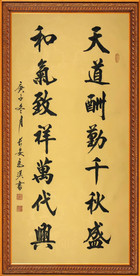 天道酬勤千秋盛
和氣致祥萬代興
庚子冬月